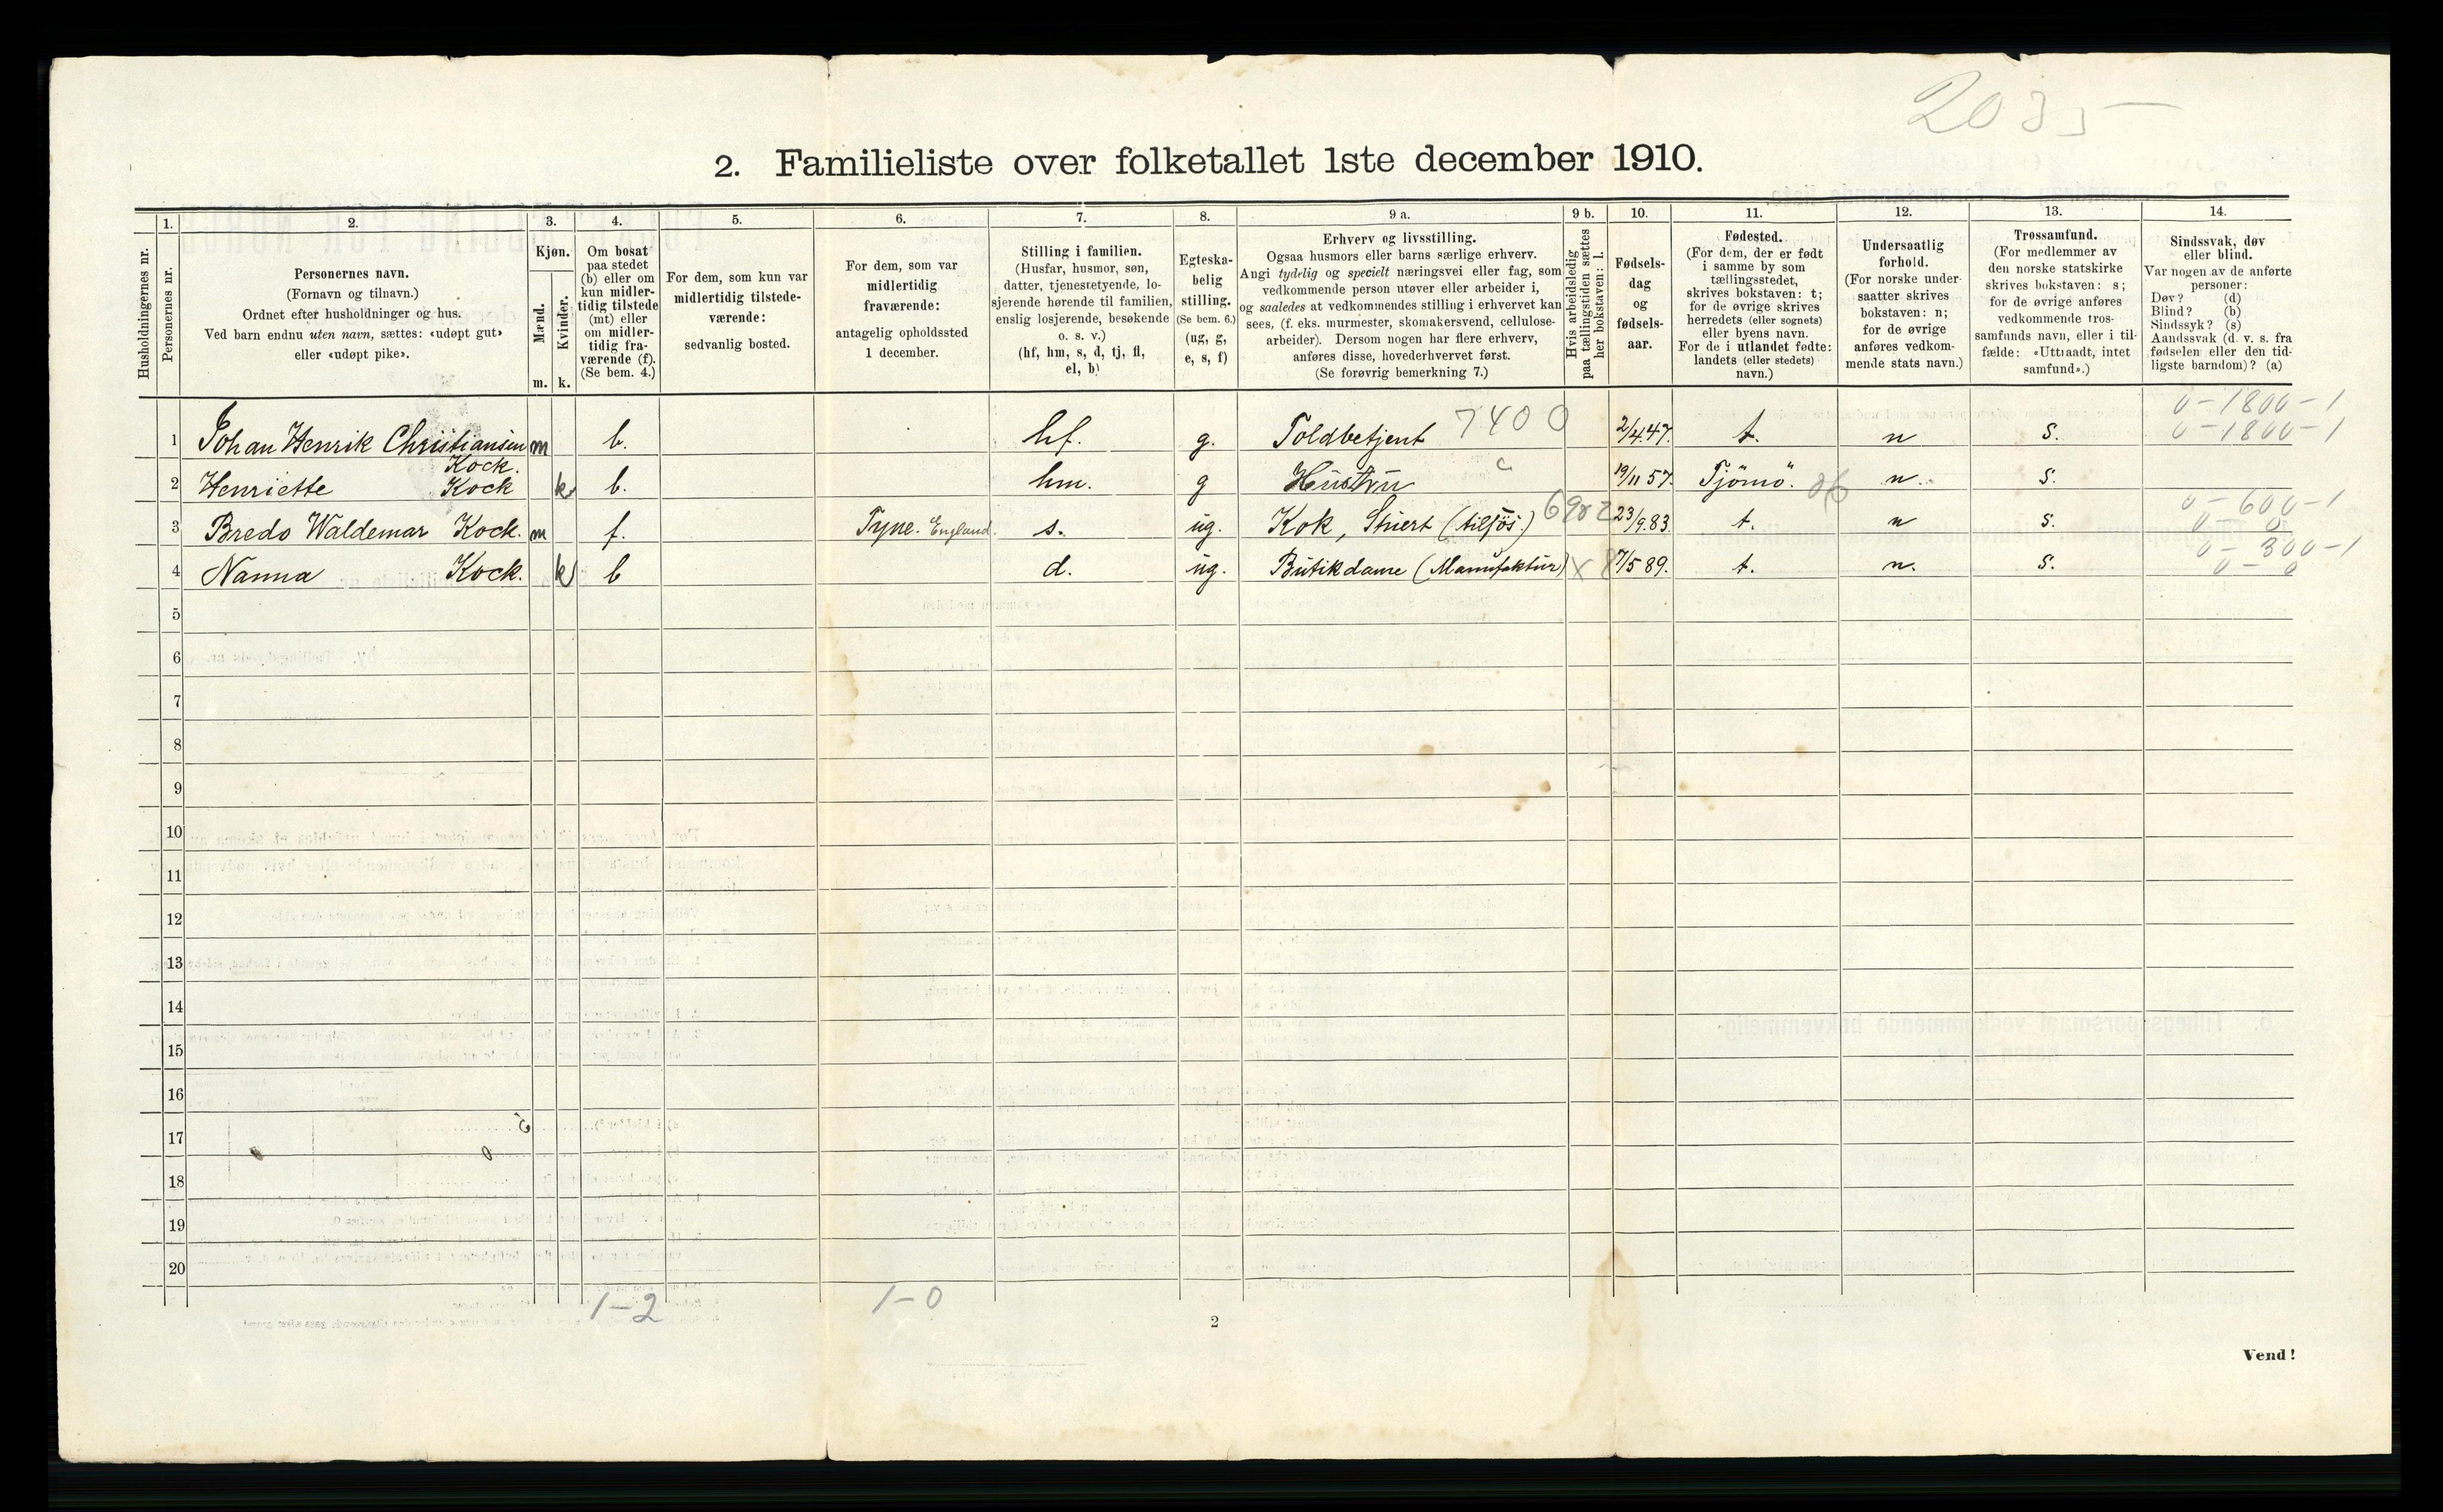 2035 —
2. Familieliste over folketallet 1ste december 1910.
Husholdningernes nr.
1.
Personernes nr.
2.
Personernes navn.
(Fornavn og tilnavn.)
Ordnet efter husholdninger og hus.
Ved barn endnu uten navn, sættes: «udøpt gut»
eller «udøpt pike».
3.
Kjøn.
Mænd.
Kvinder.
m. k.
4.
Om bosat
paa stedet
(b) eller om
kun midler-
tidig tilstede
(mt) eller
om midler-
tidig fra-
værende (f).
(Se bem. 4.)
5.
For dem, som kun var
midlertidig tilstede-
værende:
sedvanlig bosted.
6.
For dem, som var
midlertidig
fraværende:
antagelig opholdssted
1 december.
7.
Stilling i familien.
(Husfar, husmor, søn,
datter, tjenestetyende, lo-
sjerende hørende til familien,
enslig losjerende, besøkende
o. s. v.)
(hf, hm, s, d, tj, fl,
el, b)
8.
Egteska-
belig
stilling.
(Se bem. 6.)
(ug, g,
e, s, f)
9 a.
Erhverv og livsstilling.
Ogsaa husmors eller barns særlige erhverv.
Angi tydelig og specielt næringsvei eller fag, som
vedkommende person utøver eller arbeider i,
og saaledes at vedkommendes stilling i erhvervet kan
sees, (f. eks. murmester, skomakersvend, cellulose-
arbeider). Dersom nogen har flere erhverv,
anføres disse, hovederhvervet først.
(Se forøvrig bemerkning 7.)
9 b.
Hvis arbeidsledig
paa tællingstiden sættes
her bokstaven: l.
10.
Fødsels-
dag
og
fødsels-
aar.
11.
Fødested.
(For dem, der er født
i samme by som
tællingsstedet,
skrives bokstaven: t;
for de øvrige skrives
herredets (eller sognets)
eller byens navn.
For de i utlandet fødte:
landets (eller stedets)
navn.)
12.
Undersaatlig
forhold.
(For norske under-
saatter skrives
bokstaven: n;
for de øvrige
anføres vedkom-
mende stats navn.)
13.
Trossamfund.
(For medlemmer av
den norske statskirke
skrives bokstaven: s;
for de øvrige anføres
vedkommende tros-
samfunds navn, eller i til-
fælde: «Uttraadt, intet
samfund».)
14.
Sindssvak, døv
eller blind.
Var nogen av de anførte
personer:
Døv? (d)
Blind? (b)
Sindssyk? (s)
Aandssvak (d. v. s. fra
fødselen eller den tid-
ligste barndom)? (a)
0 - 1800 - 1
1 Johan Henrik Christiansen m b. hf. g. Toldbetjent 7400 2/4.47. t. n s. 0 - 1800 - 1
Kock.
2 Henriette Kock k b. hm. g Hustru 19/11 57. Tjömö. n. s.
0 - 600 - 1
3 Bredo Waldemar Kock. m f. Tyne. England. s. ug. Kok, Stuert (tilsjös.) 23/9.83. t. n s. 0 - 0
0 - 300 - 1
4 Nanna Kock. k b d. ug. Butikdame (Manufaktur) x 7/5 89. t. n. s. 0 - 0
5
6
7
8
9
10
11
12
13
14
15
16
17
18
19
20
1 - 2 1 - 0
2
Vend!